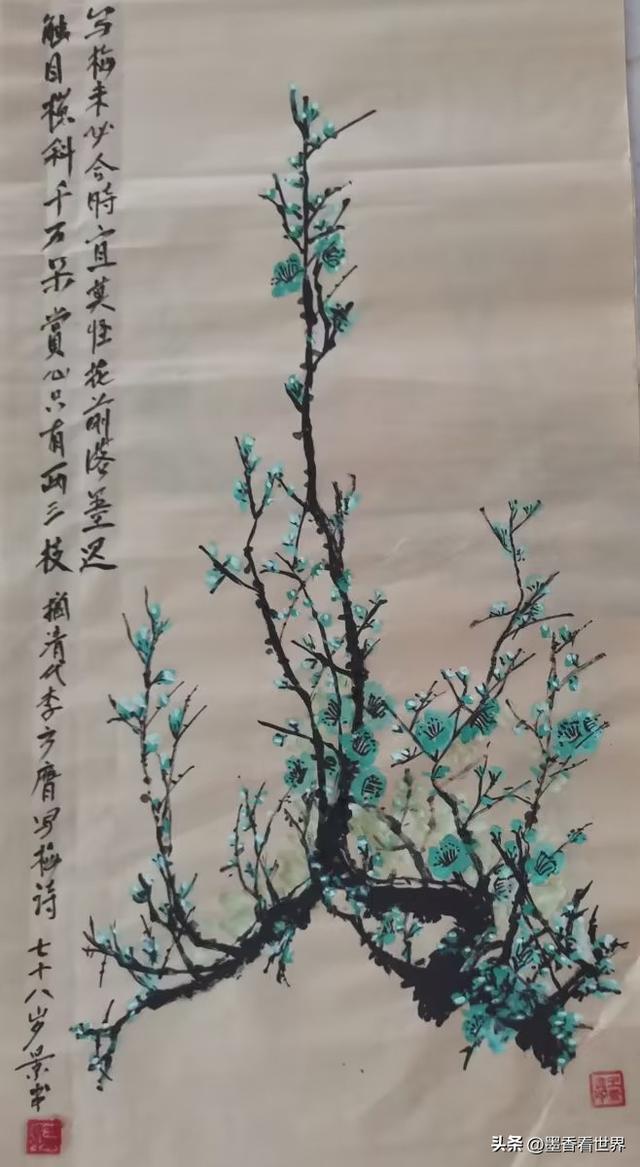 写梅未必合時宜莫怪花前落墨迟
触目横斜千万朵賞心只有两三枝 摘清代李方膺写梅诗 七十八岁景
头条 @墨香看世界